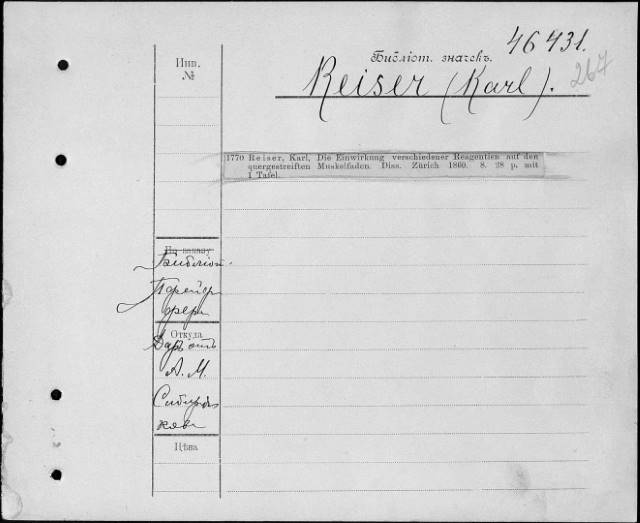 46431.
Инв.
№
Библіот. значекъ.
267
Reiser (Karl).
1770 Reiser, Karl, Die Einwirkung verschiedener Reagentien auf den
quergestreiften Muskelfaden. Diss. Zürich 1860. 8. 28 p. mit
1 Tafel.
По заказу
Библіот.
Пфейф
фера
Откуда
Даръ отъ
А. М.
Сибиря
кова
Цѣна